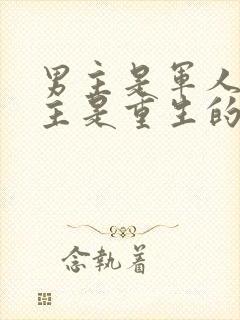 男主是軍人
主是重生的
念執着